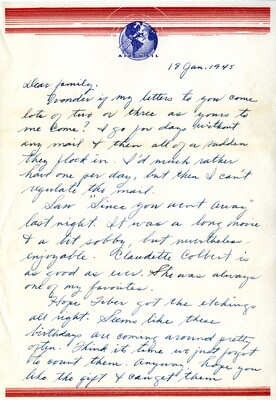 AIR MAIL
19 Jan. 1945
Dear family,
Wonder if my letters to you come
lots of two or three as yours to
me come? I go for days without
any mail & then all of a sudden
they flock in. I'd much rather
have one per day, but then I can't
regulate the mail.
Saw "Since you went Away"
last night. It was a long movie
& a bit sobby, but nevertheless
enjoyable. Claudette Colbert is
as good as ever. She was always
one of my favorites.
Hope Faber got the etchings
all right. Seems like these
birthdays are coming around pretty
often. Think it time we just forgot
to count them. Anyway, hope you
like the gift & can get them